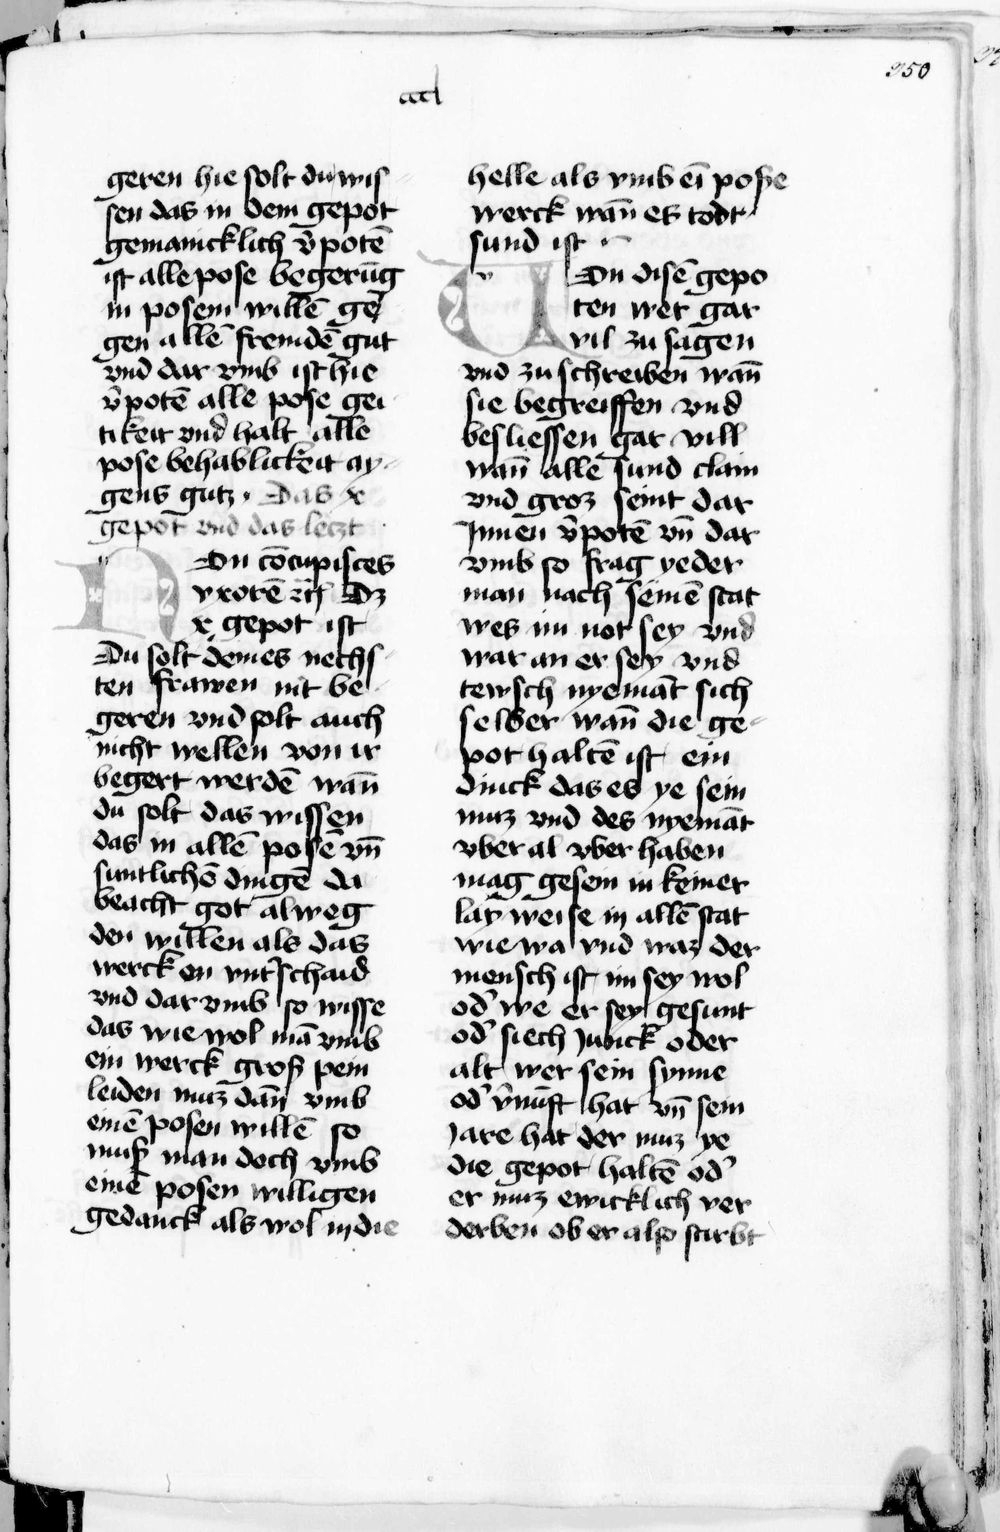 250
ccl
geren hie solt du wis-
sen das in dem gepot
gemainicklich v̄potē
ist alle pose begerūg
in posem willē ge
gen allē fremdē gut
vnd dar vmb ist hie
v̄potē alle pose gei
tikeit vnd halt alle
pose behablickeit ay-
gens gutz. Das x
gepot vnd das leczt
Non cōcupisces
vxorē etc̄ Dz
x gepot ist
Du solt deines nechs-
ten frawen nit be-
geren vnd solt auch
nicht wellen von ir
begert werdē wan̄
du solt das wissen
das in allē posē vn̄
suntlichē dingē da
beacht got alweg
den willen als das
werck on vnt̓schaid
vnd dar vmb so wisse
das wie wol mā vmb
ein werck groß pein
leiden muz dan̄ vmb
einē posen willē so
muß man doch vmb
einē posen willigen
gedanck als wol in die
helle als vmb eī poße
werck wan̄ es todt
sund ist
Von disē gepo
ten wer gar
vil zu sagen
vnd zu schreiben wan̄
sie begreiffen vnd
besliessen gar vill
wan̄ alle sund clain
vnd groz seint dar
Innen v̄potē vn̄ dar
vmb so frag yeder
man nach seinē stat
wes im not sey vnd
war an er sey vnd
tewsch nyemāt sich
selber wan̄ die ge-
pot haltē ist ein
dinck das es ye sein
muz vnd des nyemāt
vber al vber haben
mag gesein in keiner
lay weise in allē stat
wie wa vnd waz der
mensch ist im sey wol
od̓ we er sey gesunt
od̓ siech Junck oder
alt wer sein synne
od̓ v̄nūft hat vn̄ sein
Jare hat der muz ye
die gepot haltē od̓
er muz ewicklich ver
derben ob er also stirbt